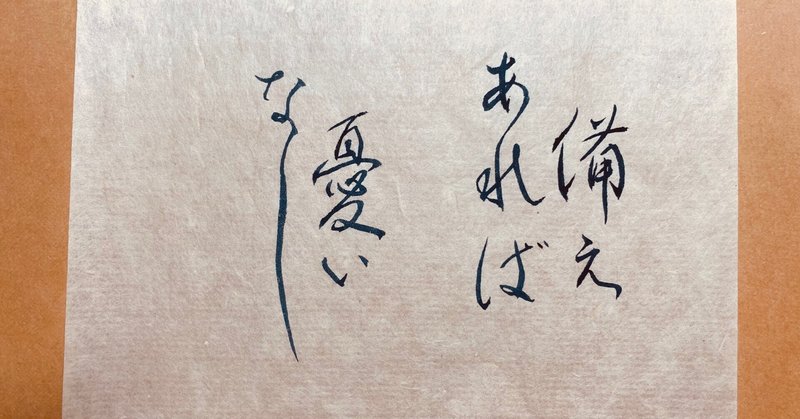 備え
あれば
憂い
なし